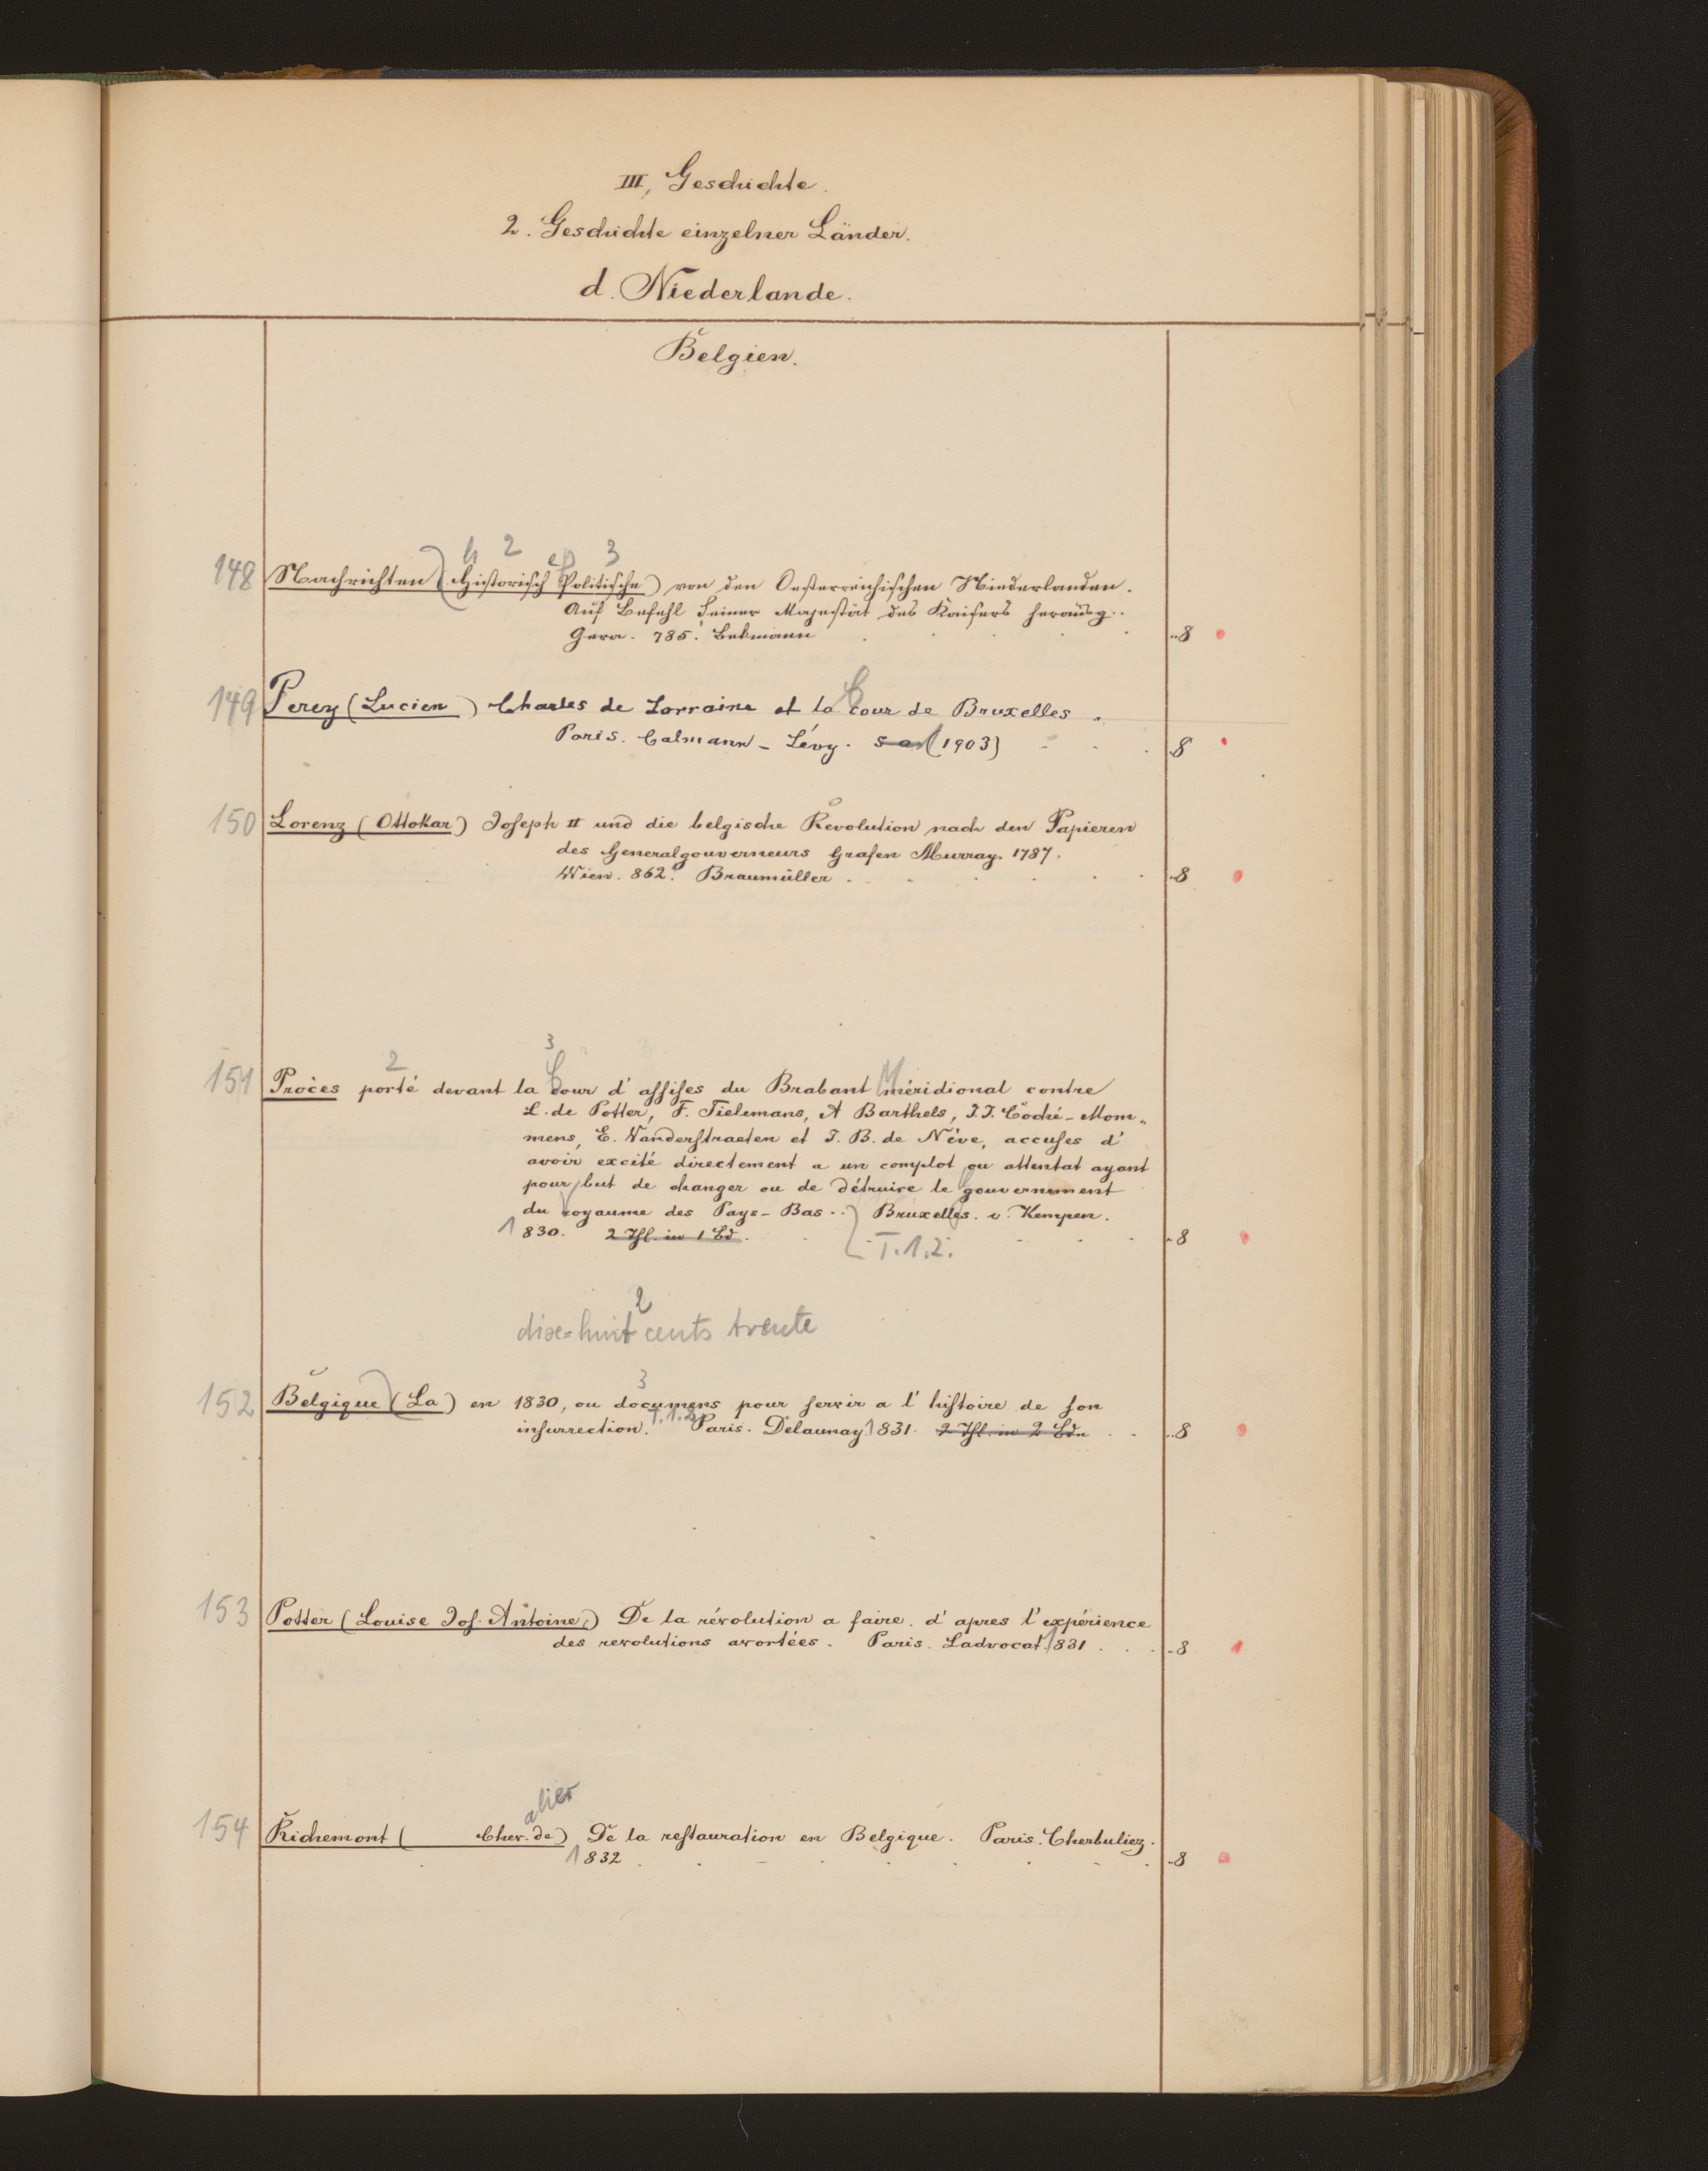 III, Geschichte.
2. Geschichte einzelner Länder.
d. Niederlande.
Belgien.
h 2 p 3
148 Nachrichten (Historisch Politische) von den Oesterreichischen Niederlanden.
Auf Befehl Seiner Majestät des Kaisers herausg..
Gera. 785. Bekmann . . . . 8
149 Perey (Lucien) Charles de Lorraine et la Cour de Bruxelles.
Paris. Calmann-Lévy. s a (1903) . . . 8
150 Lorenz (Ottokar) Joseph II und die belgische Revolution nach den Papieren
des Generalgouverneurs Grafen Murray. 1787.
Wien. 862. Braumüller . . . . 8
2 3
151 Procès porté devant la Cour d' assises du Brabant Méridional contre
L. de Potter, F. Tielemans, A Barthels, J.J. Coché-Mom-
mens, E. Vanderstraeten et J. B. de Nève, accuses d'
avoir excité directement a un complot ou attentat ayant
pour but de changer ou de détruire le gouvernement
du royaume des Pays-Bas .. Bruxelles. v. Kempen.
1830. 2 Thl. in 1 Bd. . . . 8
T. 1. 2.
2
dix=huit cents trente
3
152 Belgique (La) en 1830, ou documens pour servir a l' histoire de son
insurrection. T. 1. 2. Paris. Delaunay. 1831. 2 Thl. in 2 Bdn . . 8
153 Potter (Louise Jos. Antoine,) De la révolution a faire. d' apres l' expérience
des revolutions avortées. Paris. Ladvocat. 1831 . . . 8 1
alier
154 Richemont ( Chev. de) De la restauration en Belgique. Paris. Cherbuliez.
1832 . . . . 8